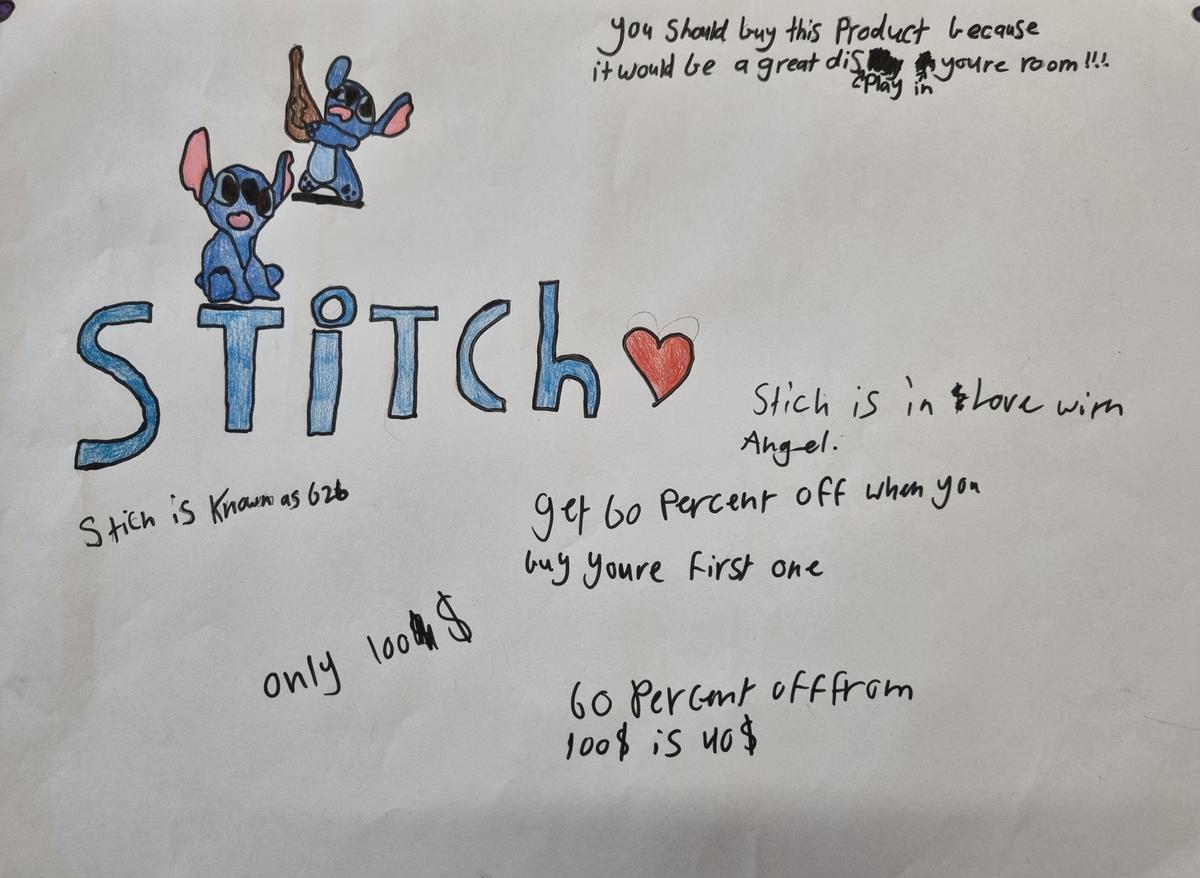 you should buy this Product because
it would be a great display in youre room!!!
STiTCh
Stich is in Love with
Angel.
Stich is Known as 626
get 60 Percent off when you
buy youre first one
only 100$
60 Percent off from
100$ is 40$